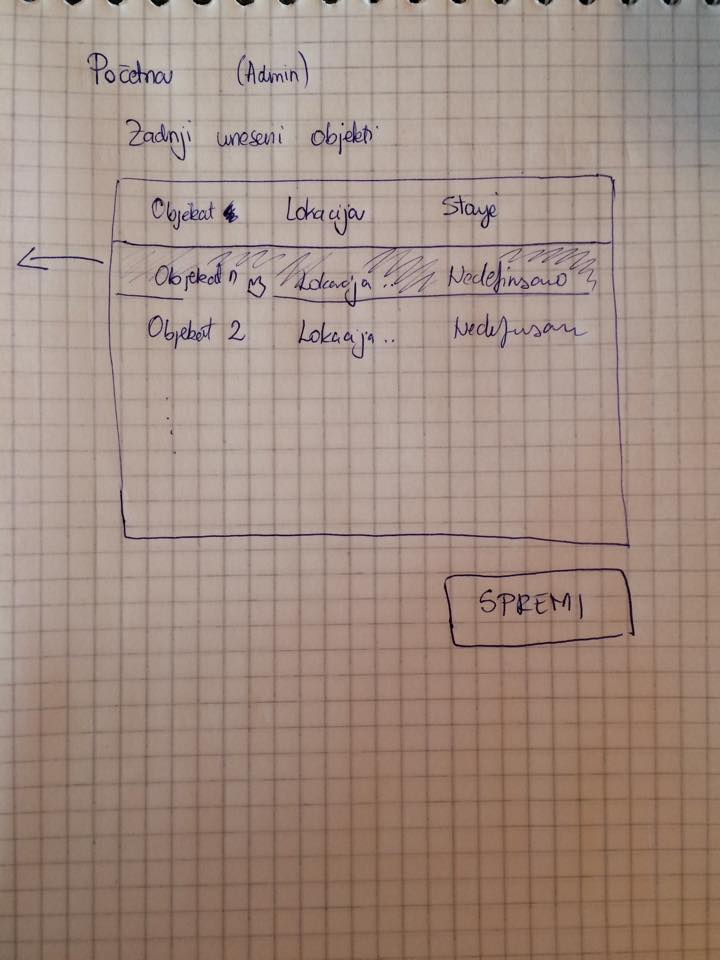 Početna (Admin)
Zadnji uneseni objekti
Objekat Lokacija Stanje
Objekat n Lokacija .. Nedefinisano
Objekat 2 Lokacija .. Nedefinisan
SPREMI